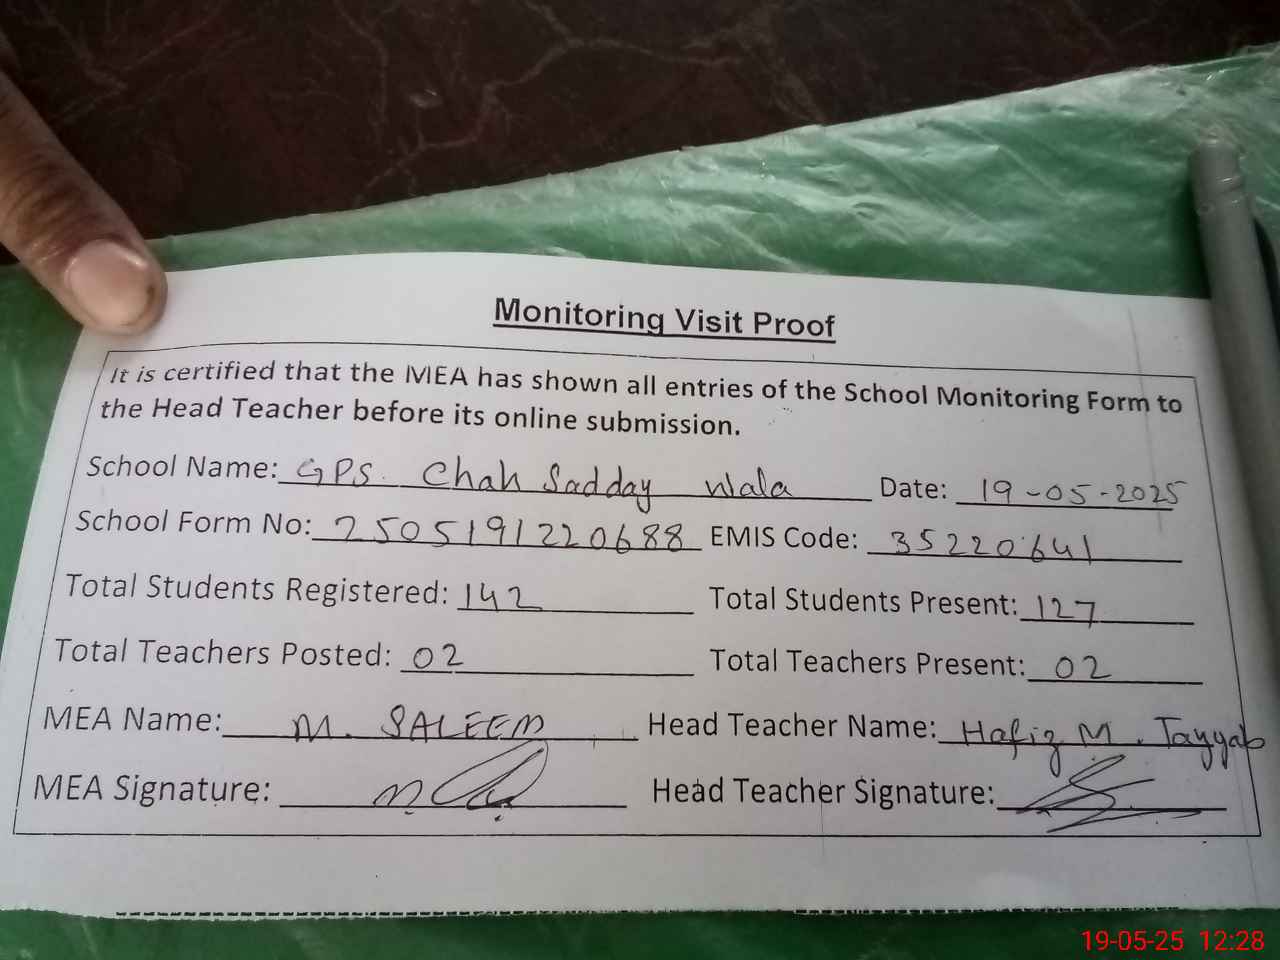 Monitoring Visit Proof
It is certified that the MEA has shown all entries of the School Monitoring Form to
the Head Teacher before its online submission.
School Name: GPS. Chah Sadday wala Date: 19-05-2025
School Form No: 2505191220688 EMIS Code: 35220641
Total Students Registered: 142 Total Students Present: 127
Total Teachers Posted: 02 Total Teachers Present: 02
MEA Name: M. SALEEM Head Teacher Name: Hafiz M. Tayyab
MEA Signature: Head Teacher Signature:
19-05-25 12:28